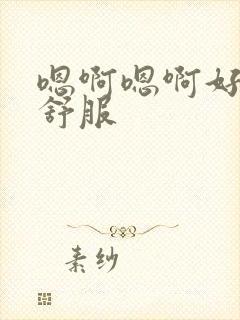 嗯啊嗯啊好
舒服
素纱